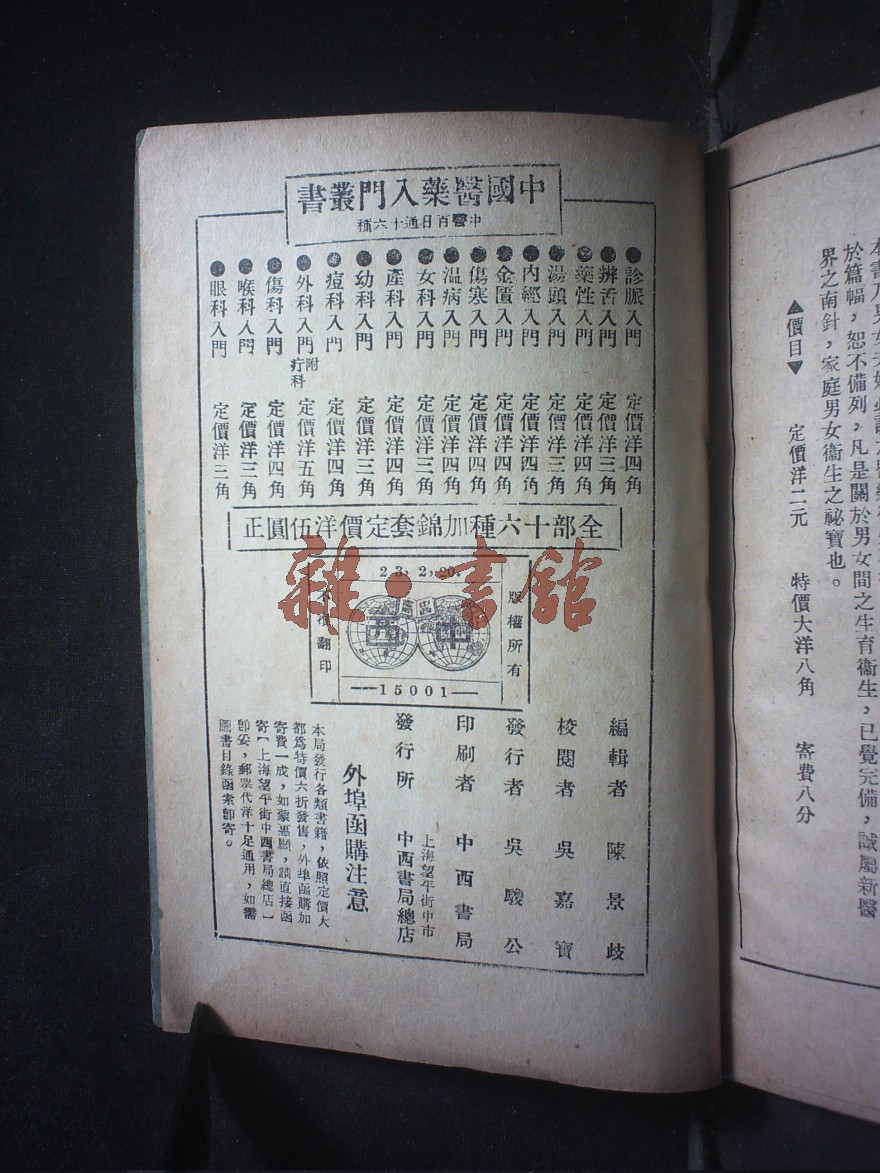 中國醫藥入門叢書
中醫百日通十六種
●診脈入門 定價洋四角
●辨舌入門 定價洋三角
●藥性入門 定價洋四角
●湯頭入門 定價洋三角
●內經入門 定價洋四角
●金匱入門 定價洋四角
●傷寒入門 定價洋四角
●温病入門 定價洋四角
●女科入門 定價洋四角
●產科入門 定價洋四角
●幼科入門 定價洋三角
●痘科入門 定價洋四角
●外科入門 附疔科 定價洋五角
●傷科入門 定價洋四角
●喉科入門 定價洋三角
●眼科入門 定價洋三角
全部十六種加錦套定價洋伍圓正
版權所有
23,2,20.
15001
翻印
編輯者 陳景歧
校閱者 吳嘉寶
發行者 吳駿公
印刷者 中西書局
發行所 上海望平街中市 中西書局總店
外埠函購注意
本局發行各類書籍，依照定價大
都爲特價六折發售，外埠函購加
寄費一成，如蒙惠顧，請直接函
寄【上海望平街中西書局總店】
卽妥，郵票代洋十足通用，如需
圖書目錄函索卽寄。
於篇幅，恕不備列，凡是關於男女間之生育衞生，已覺完備，誠屬新醫
界之南針，家庭男女衞生之祕寶也。
▲價目▼ 定價洋二元 特價大洋八角 寄費八分
雜·書館